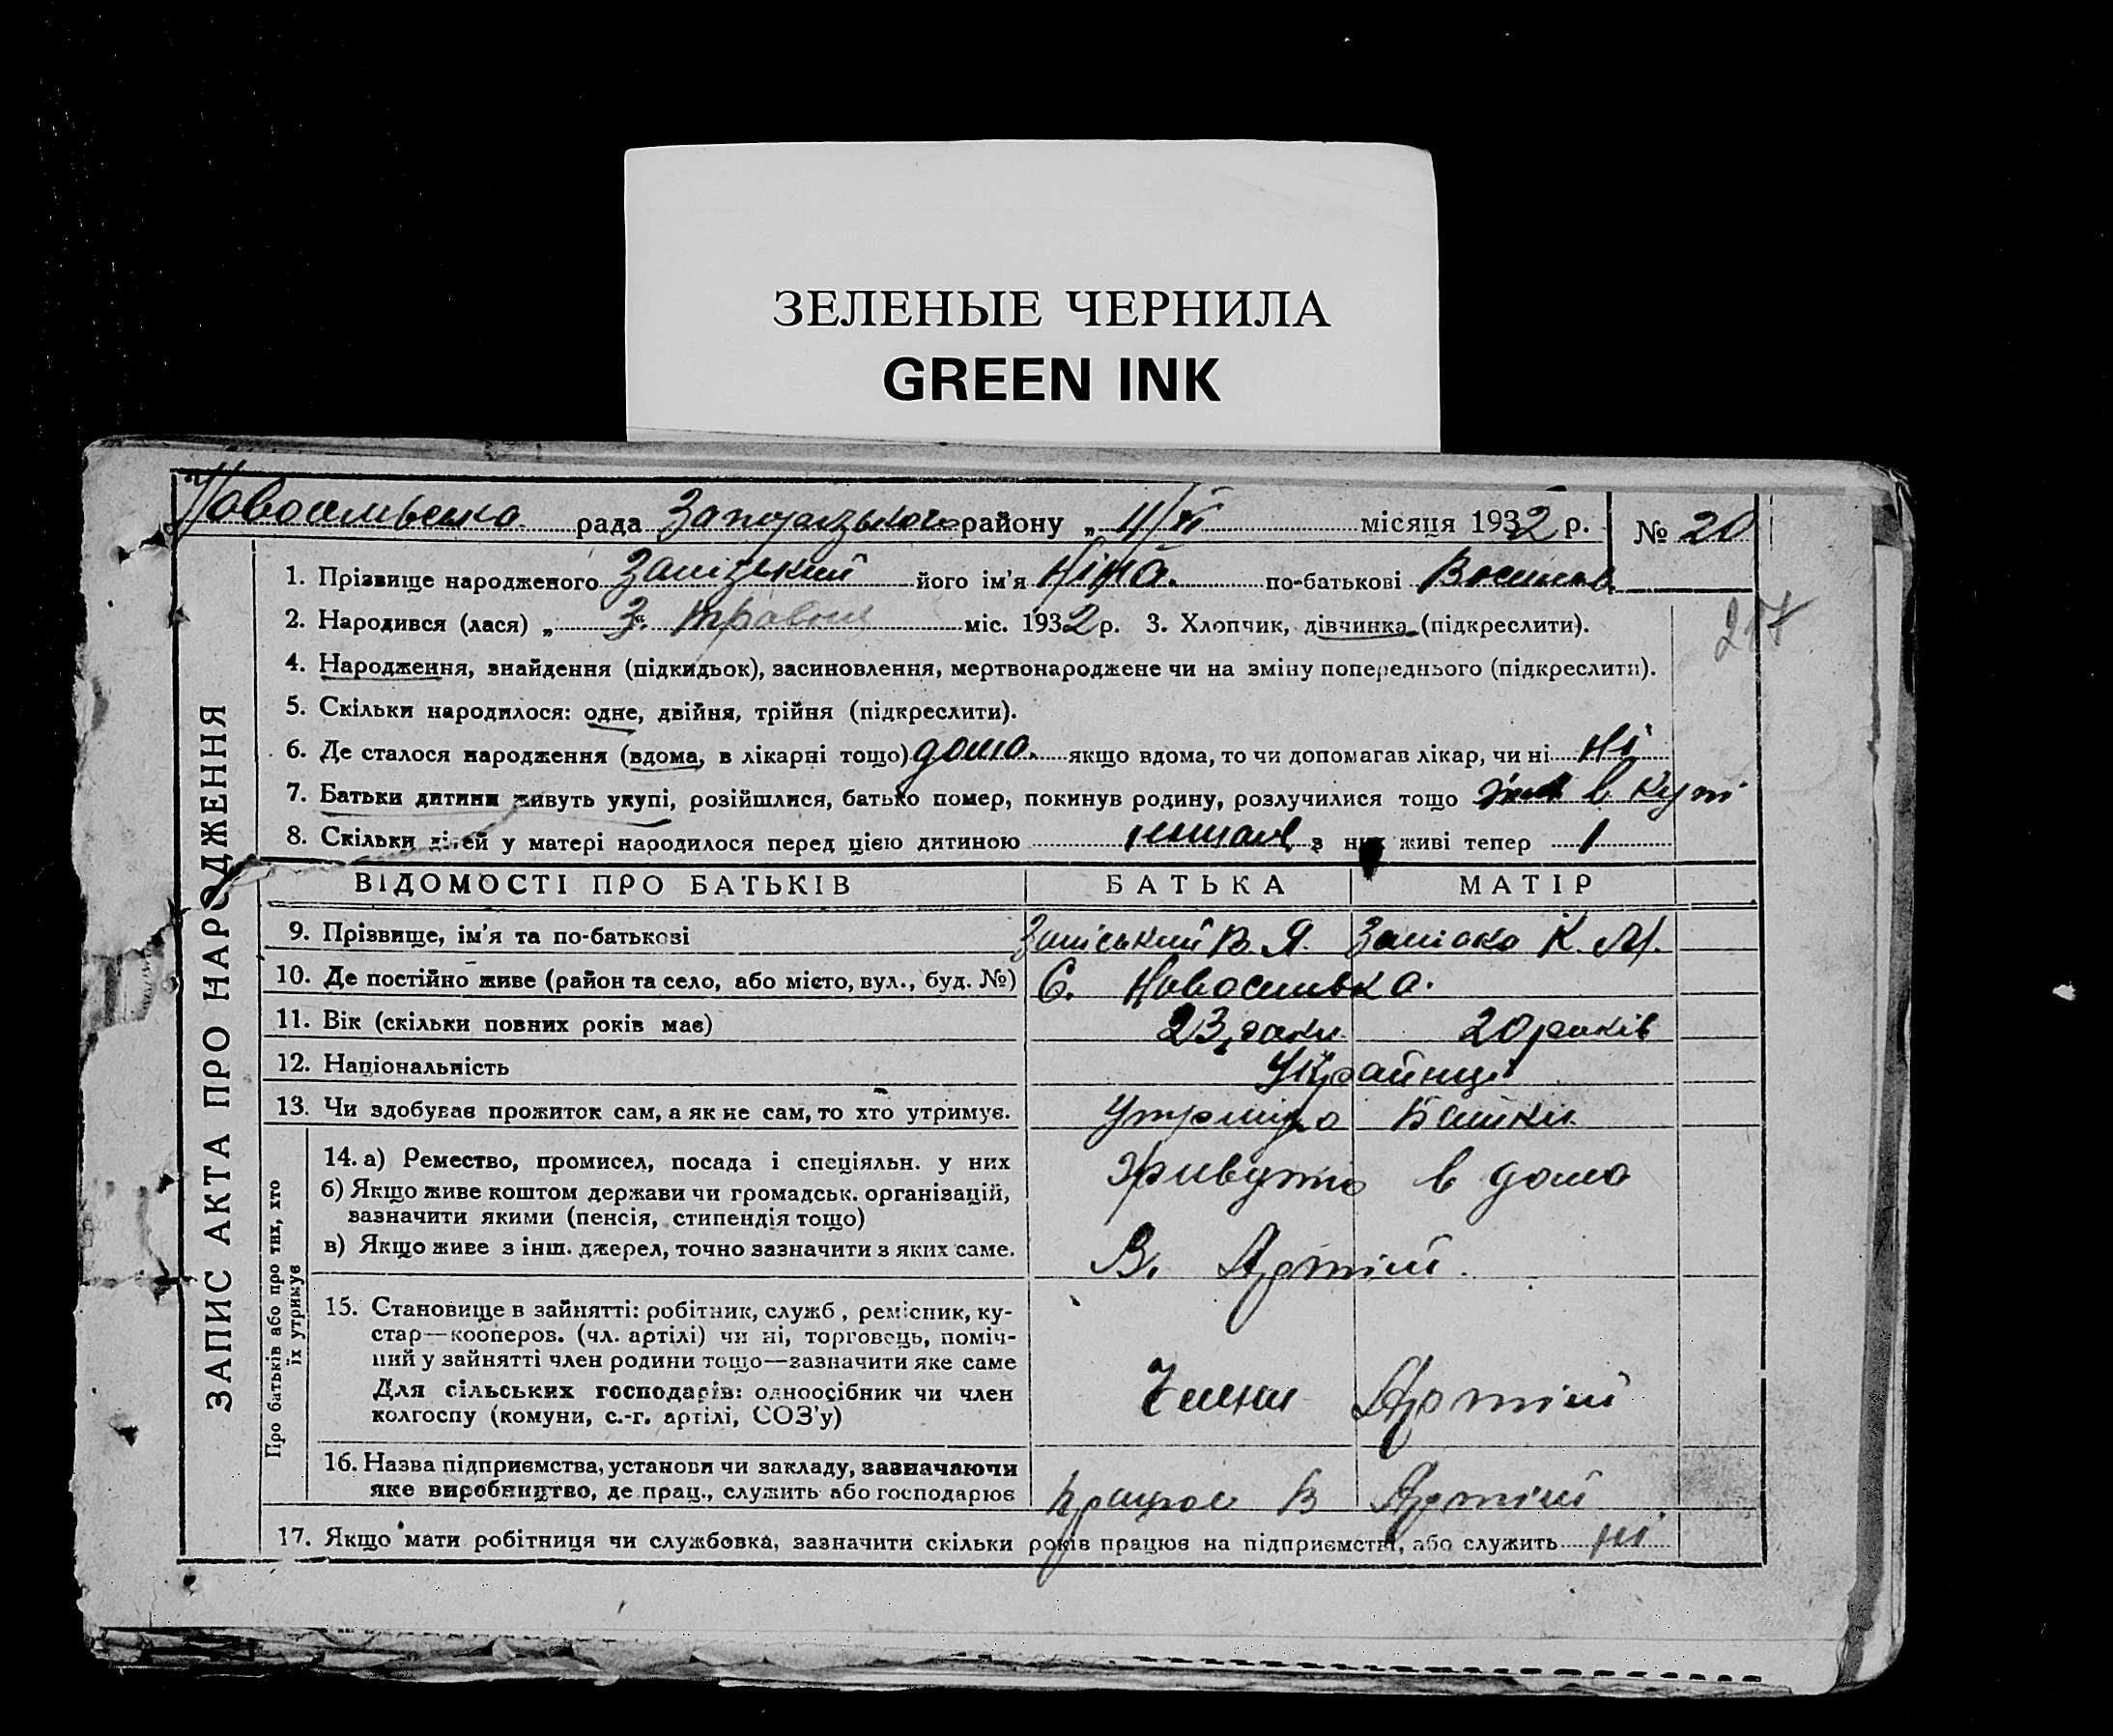 ЗЕЛЕНЫЕ ЧЕРНИЛА
GREEN INK
рада району „ 11/VI місяця 1932 р. № 20
1. Прізвище народженого його ім'я Ніна. по-батькові
217
2. Народився (лася) „ 3. травня міс. 1932 р. 3. Хлопчик, дівчинка (підкреслити).
4. Народження, знайдення (підкидьок), засиновлення, мертвонароджене чи на зміну попереднього (підкреслити).
5. Скільки народилося: одне, двійня, трійня (підкреслити).
6. Де сталося народження (вдома, в лікарні тощо) дома. якщо вдома, то чи допомагав лікар, чи ні ні
7. Батьки дитини живуть укупі, розійшлися, батько помер, покинув родину, розлучилися тощо в купі
8. Скільки дітей у матері народилося перед цією дитиною з них живі тепер 1
ЗАПИС АКТА ПРО НАРОДЖЕННЯ
ВІДОМОСТІ ПРО БАТЬКІВ БАТЬКА МАТІР
9. Прізвище, ім'я та по-батькові В. Я. К. М.
10. Де постійно живе (район та село, або місто, вул., буд. №) С.
11. Вік (скільки повних років має) 23 роки 20 років
12. Національність Українці
13. Чи здобуває прожиток сам, а як не сам, то хто утримує. Батьки
Про батьків або про тих, хто їх утримує
14. а) Ремество, промисел, посада і спеціяльн. у них
б) Якщо живе коштом держави чи громадськ. організацій,
зазначити якими (пенсія, стипендія тощо)
в) Якщо живе з інш. джерел, точно зазначити з яких саме.
живуть в дома
В. Артілі
15. Становище в зайнятті: робітник, служб., ремісник, ку-
стар—кооперов. (чл. артілі) чи ні, торговець, поміч-
ний у зайнятті член родини тощо—зазначити яке саме
Для сільських господарів: одноосібник чи член
колгоспу (комуни, с.-г. артілі, СОЗ'у)
Члени Артілі
16. Назва підприємства, установи чи закладу, зазначаючи
яке виробництво, де прац., служить або господарює
В Артілі
17. Якщо мати робітниця чи службовка, зазначити скільки років працює на підприємстві, або служить ні